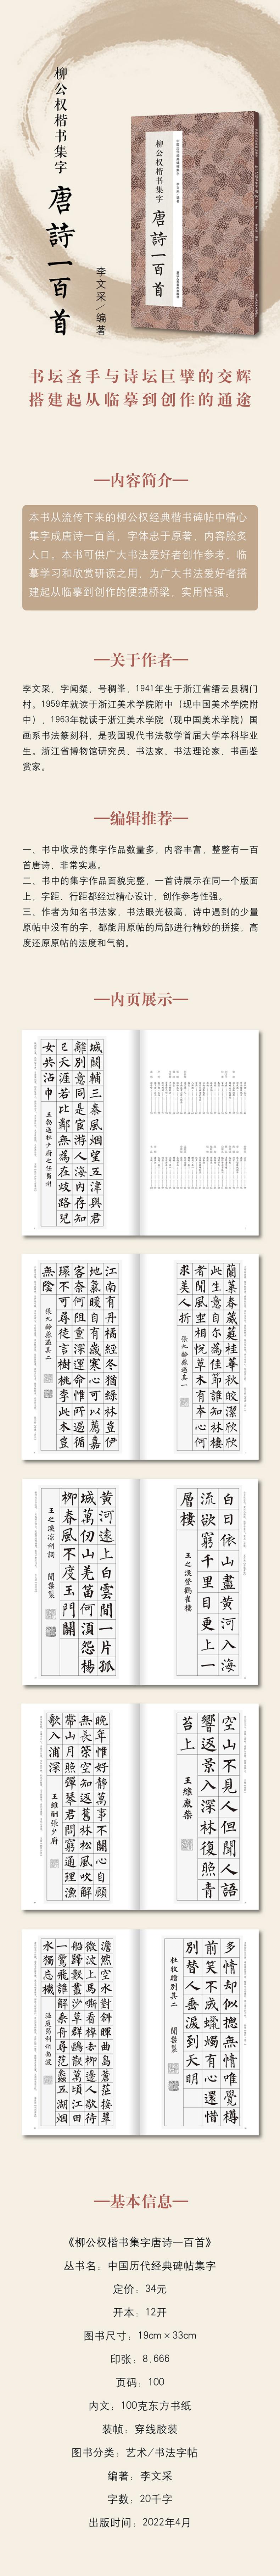 柳公权楷书集字
唐詩一百首
李文采／编著
柳公权楷书集字
唐詩一百首
书坛圣手与诗坛巨擘的交辉
搭建起从临摹到创作的通途
内容简介
本书从流传下来的柳公权经典楷书碑帖中精心
集字成唐诗一百首，字体忠于原著，内容脍炙
人口。本书可供广大书法爱好者创作参考，临
摹学习和欣赏研读之用，为广大书法爱好者搭
建起从临摹到创作的便捷桥梁，实用性强。
关于作者
李文采，字闻粲，号稠峯，1941年生于浙江省缙云县稠门
村。1959年就读于浙江美术学院附中（现中国美术学院附
中），1963年就读于浙江美术学院（现中国美术学院）国
画系书法篆刻科，是我国现代书法教学首届大学本科毕业
生。浙江省博物馆研究员、书法家、书法理论家、书画鉴
赏家。
编辑推荐
一、书中收录的集字作品数量多，内容丰富，整整有一百
首唐诗，非常实惠。
二、书中的集字作品面貌完整，一首诗展示在同一个版面
上，字距、行距都经过精心设计，创作参考性强。
三、作者为知名书法家，书法眼光极高，诗中遇到的少量
原帖中没有的字，都能用原帖的局部进行精妙的拼接，高
度还原原帖的法度和气韵。
内页展示
城闕輔三秦風烟望五津與君
離別意同是宦游人海内存知
己天涯若比鄰無為在歧路兒
女共沾巾
王勃送杜少府之任蜀州
蘭葉春葳蕤桂華秋皎潔欣欣
此生意自尔為佳節誰知林棲
者聞風坐相悦草木有本心何
求美人折
張九齡感遇其一
江南有丹橘經冬猶綠林豈伊
地氣暖自有歲寒心可以薦嘉
客奈何阻重深運命惟所遇循
環不可尋徒言樹桃李此木豈
無陰
張九齡感遇其二
白日依山盡黄河入海
流欲窮千里目更上一
層樓
王之渙登鸛雀樓
黄河遠上白雲間一片孤
城萬仞山羌笛何須怨楊
柳春風不度玉門關
王之渙凉州詞
聞粲製
空山不見人但聞人語
響返景入深林復照青
苔上
王維鹿柴
晚年惟好静萬事不關心自顧
無長策空知返舊林松風吹解
帶山月照彈琴君問窮通理漁
歌入浦深
王維酬張少府
多情却似總無情唯覺樽
前笑不成蠟燭有心還惜
別替人垂淚到天明
杜牧贈別其二
聞粲製
澹然空水對斜暉曲島蒼茫接翠
微波上馬嘶看棹去柳邊人歇待
船歸數叢沙草群鷗散萬頃江田
一鷺飛誰解乘舟尋范蠡五湖烟
水獨忘機
温庭筠利州南渡
基本信息
《柳公权楷书集字唐诗一百首》
丛书名：中国历代经典碑帖集字
定价：34元
开本：12开
图书尺寸：19cm×33cm
印张：8.666
页码：100
内文：100克东方书纸
装帧：穿线胶装
图书分类：艺术/书法字帖
编著：李文采
字数：20千字
出版时间：2022年4月